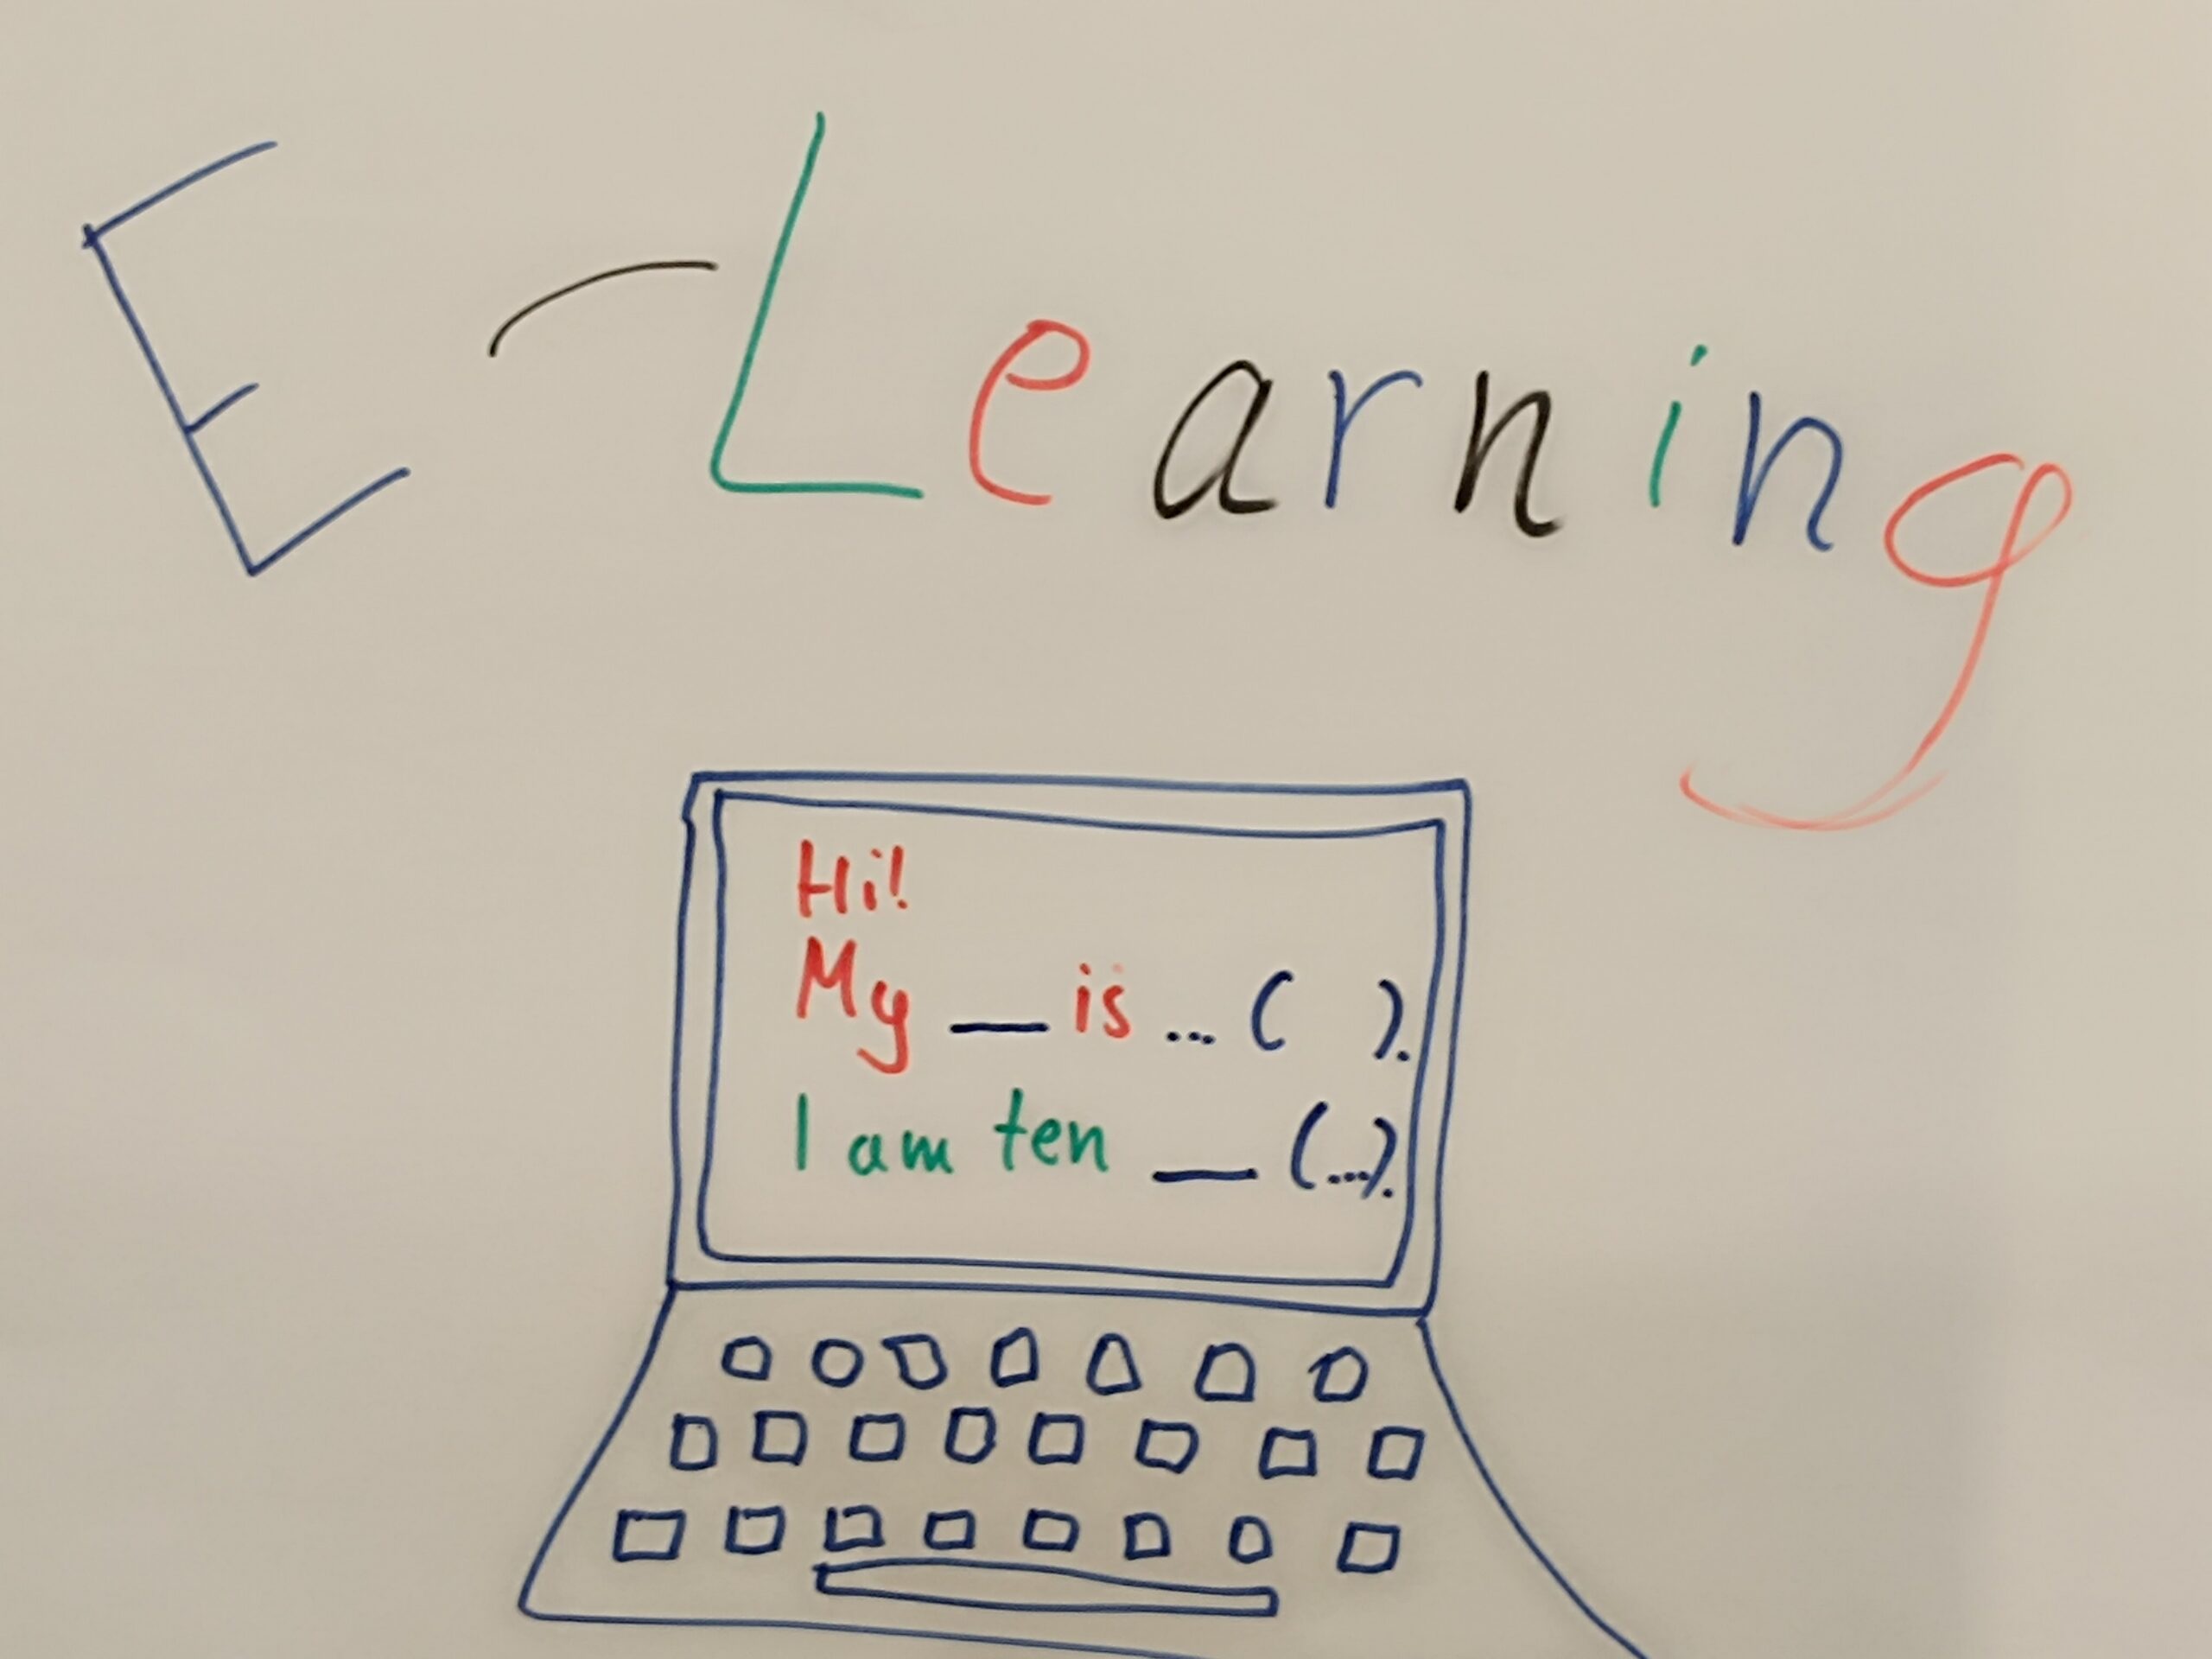 E-Learning
Hi!
My __ is ... ( ).
I am ten __ (...).